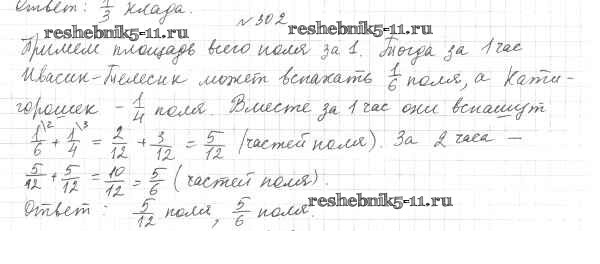 Ответ: 1/3 клада.
№302
reshebnik5-11.ru reshebnik5-11.ru
Примем площадь всего поля за 1. Тогда за 1 час
Ивасик-Телесик может вспахать 1/6 поля, а Кати-
горошек - 1/4 поля. Вместе за 1 час они вспашут
1\2/6 + 1\3/4 = 2/12 + 3/12 = 5/12 (частей поля). За 2 часа —
5/12 + 5/12 = 10/12 = 5/6 (частей поля).
Ответ: 5/12 поля, 5/6 поля.
reshebnik5-11.ru